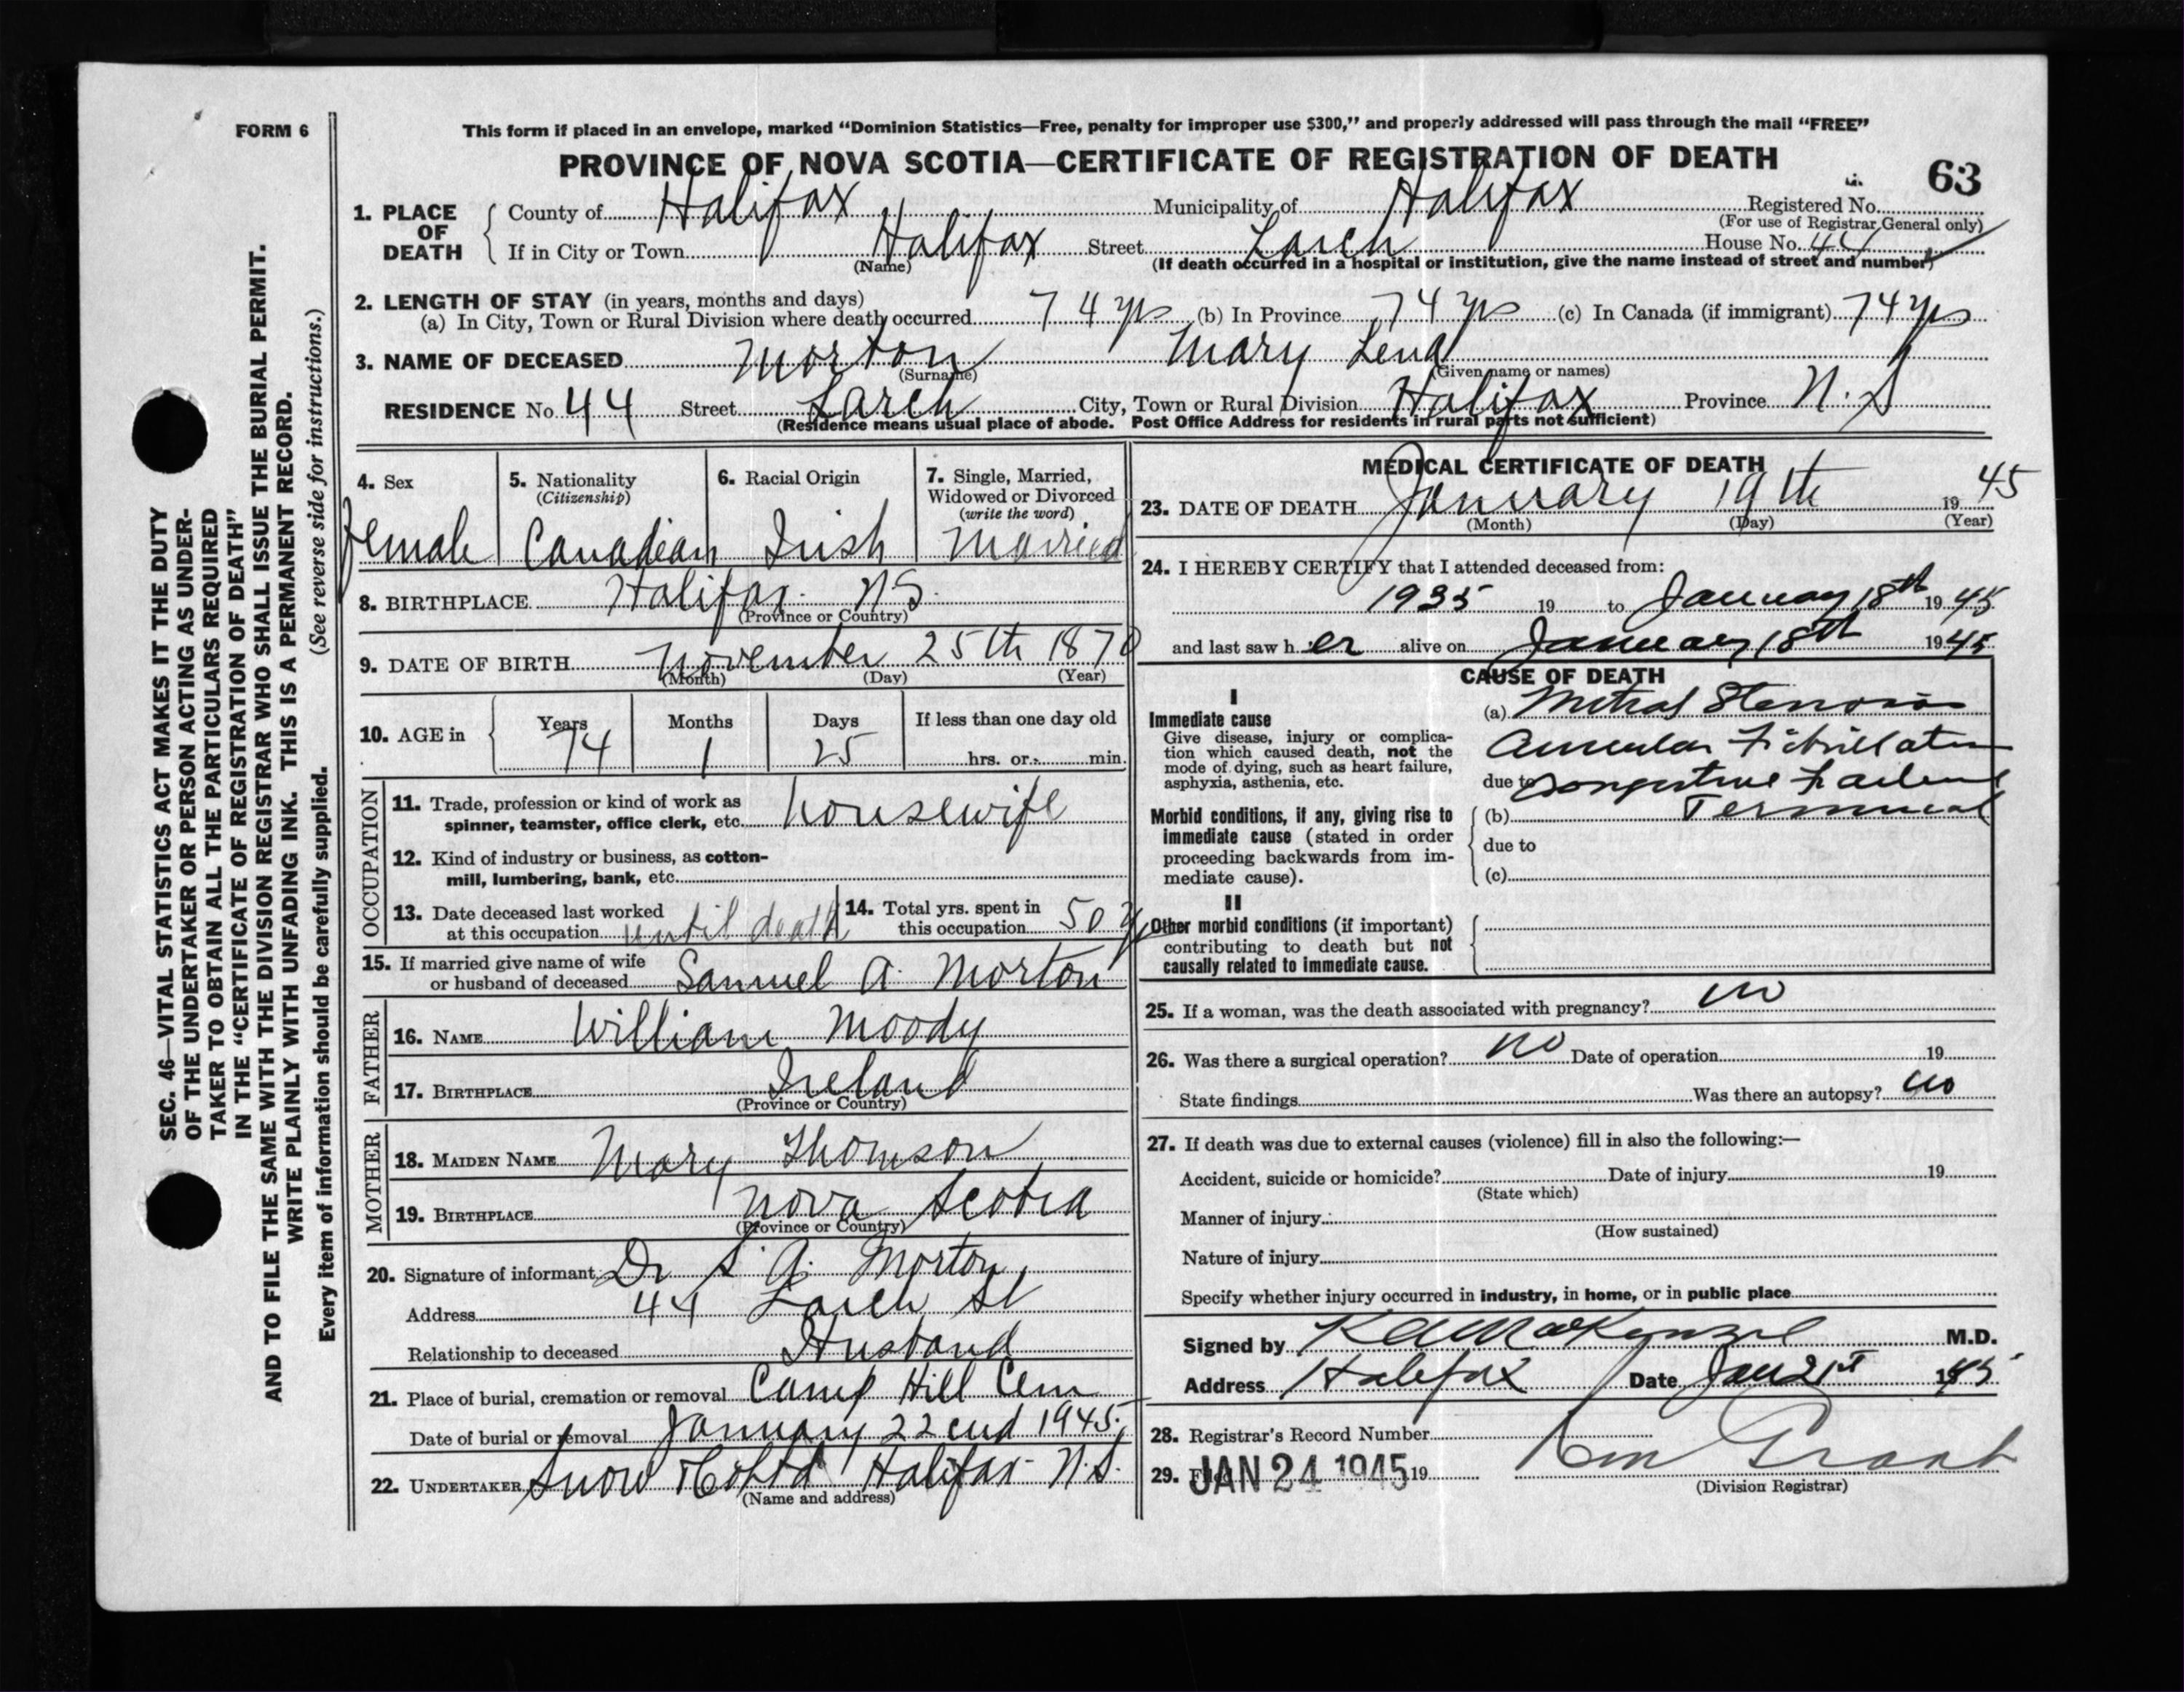 FORM 6
This form if placed in an envelope, marked “Dominion Statistics—Free, penalty for improper use $300,” and properly addressed will pass through the mail “FREE”
PROVINCE OF NOVA SCOTIA—CERTIFICATE OF REGISTRATION OF DEATH
63
1. PLACE OF DEATH
County of Halifax Municipality of Halifax Registered No.
(For use of Registrar General only)
If in City or Town Halifax Street Larch House No. 44
(Name) (If death occurred in a hospital or institution, give the name instead of street and number)
2. LENGTH OF STAY (in years, months and days)
(a) In City, Town or Rural Division where death occurred 74 yrs (b) In Province 74 yrs (c) In Canada (if immigrant) 74 yrs
3. NAME OF DECEASED Morton Mary Lena
(Surname) (Given name or names)
RESIDENCE No. 44 Street Larch City, Town or Rural Division Halifax Province N.S
(Residence means usual place of abode. Post Office Address for residents in rural parts not sufficient)
4. Sex
Female
5. Nationality
(Citizenship)
Canadian
6. Racial Origin
Irish
7. Single, Married,
Widowed or Divorced
(write the word)
Married
8. BIRTHPLACE Halifax. NS.
(Province or Country)
9. DATE OF BIRTH November 25th 1870
(Month) (Day) (Year)
10. AGE in
Years Months Days If less than one day old
74 1 25 hrs. or min.
OCCUPATION
11. Trade, profession or kind of work as
spinner, teamster, office clerk, etc. housewife
12. Kind of industry or business, as cotton-
mill, lumbering, bank, etc.
13. Date deceased last worked
at this occupation until death
14. Total yrs. spent in
this occupation 50 y
15. If married give name of wife
or husband of deceased Samuel A. Morton
FATHER
16. NAME William Moody
17. BIRTHPLACE Ireland
(Province or Country)
MOTHER
18. MAIDEN NAME Mary Thomson
19. BIRTHPLACE Nova Scotia
(Province or Country)
20. Signature of informant Dr S. A. Morton
Address 44 Larch St
Relationship to deceased Husband
21. Place of burial, cremation or removal Camp Hill Cem
Date of burial or removal January 22end 1945
22. UNDERTAKER Snow & Co Ltd Halifax N.S.
(Name and address)
MEDICAL CERTIFICATE OF DEATH
23. DATE OF DEATH January 19th 1945
(Month) (Day) (Year)
24. I HEREBY CERTIFY that I attended deceased from:
1935 19 to January 18th 1945
and last saw her alive on January 18th 1945
CAUSE OF DEATH
I
Immediate cause
Give disease, injury or complica-
tion which caused death, not the
mode of dying, such as heart failure,
asphyxia, asthenia, etc.
(a) Mitral Stenosis
Auricular Fibrillation
due to Congestive Failure
Morbid conditions, if any, giving rise to
immediate cause (stated in order
proceeding backwards from im-
mediate cause).
(b) Terminal
due to
(c)
II
Other morbid conditions (if important)
contributing to death but not
causally related to immediate cause.
25. If a woman, was the death associated with pregnancy? no
26. Was there a surgical operation? no Date of operation 19
State findings Was there an autopsy? no
27. If death was due to external causes (violence) fill in also the following:—
Accident, suicide or homicide? Date of injury 19
(State which)
Manner of injury
(How sustained)
Nature of injury
Specify whether injury occurred in industry, in home, or in public place
Signed by K A MacKenzie M.D.
Address Halifax Date Jan 21st 1945
28. Registrar's Record Number
29. Filed JAN 24 1945 19 Grant
(Division Registrar)
SEC. 46—VITAL STATISTICS ACT MAKES IT THE DUTY
OF THE UNDERTAKER OR PERSON ACTING AS UNDER-
TAKER TO OBTAIN ALL THE PARTICULARS REQUIRED
IN THE “CERTIFICATE OF REGISTRATION OF DEATH”
AND TO FILE THE SAME WITH THE DIVISION REGISTRAR WHO SHALL ISSUE THE BURIAL PERMIT.
WRITE PLAINLY WITH UNFADING INK. THIS IS A PERMANENT RECORD.
Every item of information should be carefully supplied. (See reverse side for instructions.)